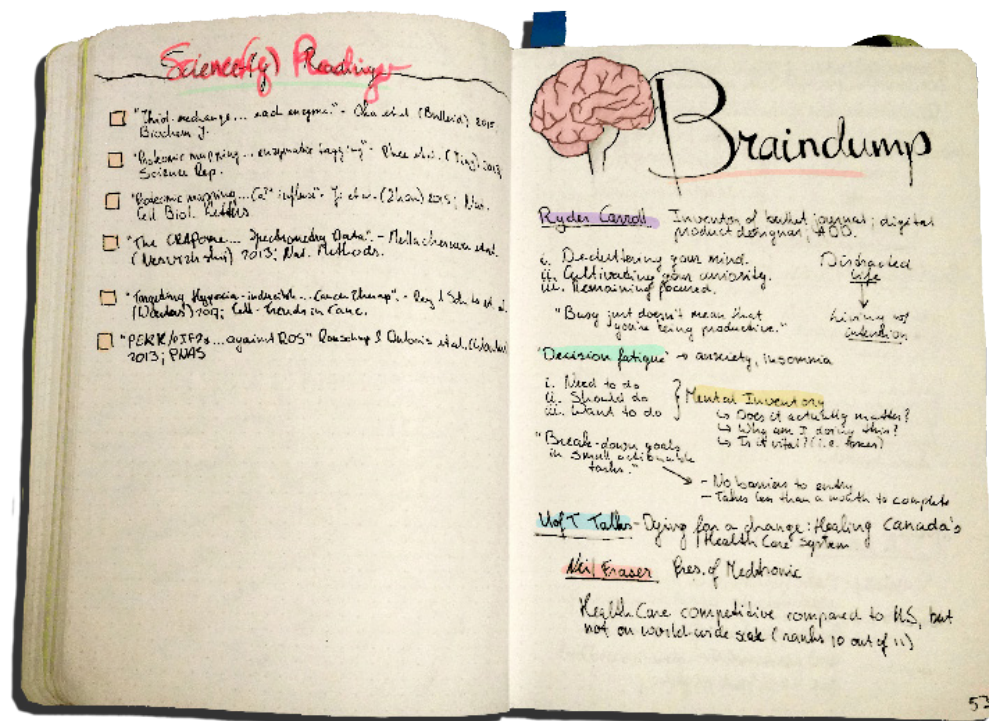 Science(y) Readings
"Thiol-exchange... each enzyme." - Oka et al. (Bulleid) 2015;
Biochem J.
"Proteomic mapping... enzymatic tagging" - Rhee et al. (Ting) 2013
Science Rep.
"Proteomic mapping... Ca²⁺ influx". - et al. (Zhou) 2015; Nat.
Cell Biol. Letters
"The CRAPome... Spectrometry Data". - Mellacheruvu et al.
(Nesvizhskii) 2013; Nat. Methods.
"Targeting Hypoxia-inducible... Cancer Therapy". - et al.
(Wouters) 2017; Cell-Trends in Canc.
"PERK/eIF2α... against ROS" Rouschop & Dubois et al. (Wouters)
2013; PNAS
Braindump
Ryder Carroll Inventor of bullet journal; digital
product designer; ADD.
i. Decluttering your mind.
ii. Cultivating your curiosity.
iii. Remaining focused.
Distracted
life
"Busy just doesn't mean that
you're being productive."
Living w/
intention
"Decision fatigue" → anxiety, insomnia
i. Need to do
ii. Should do
iii. Want to do
Mental Inventory
↳ Does it actually matter?
↳ Why am I doing this?
↳ Is it vital? (i.e. taxes)
"Break-down goals
in small actionable
tasks."
- No barriers to entry
- Takes less than a month to complete
UofT Talks - Dying for a change: Healing Canada's
Health Care System
Neil Fraser Pres. of Medtronic
Health Care competitive compared to US, but
not on world-wide scale (ranks 10 out of 11)
53